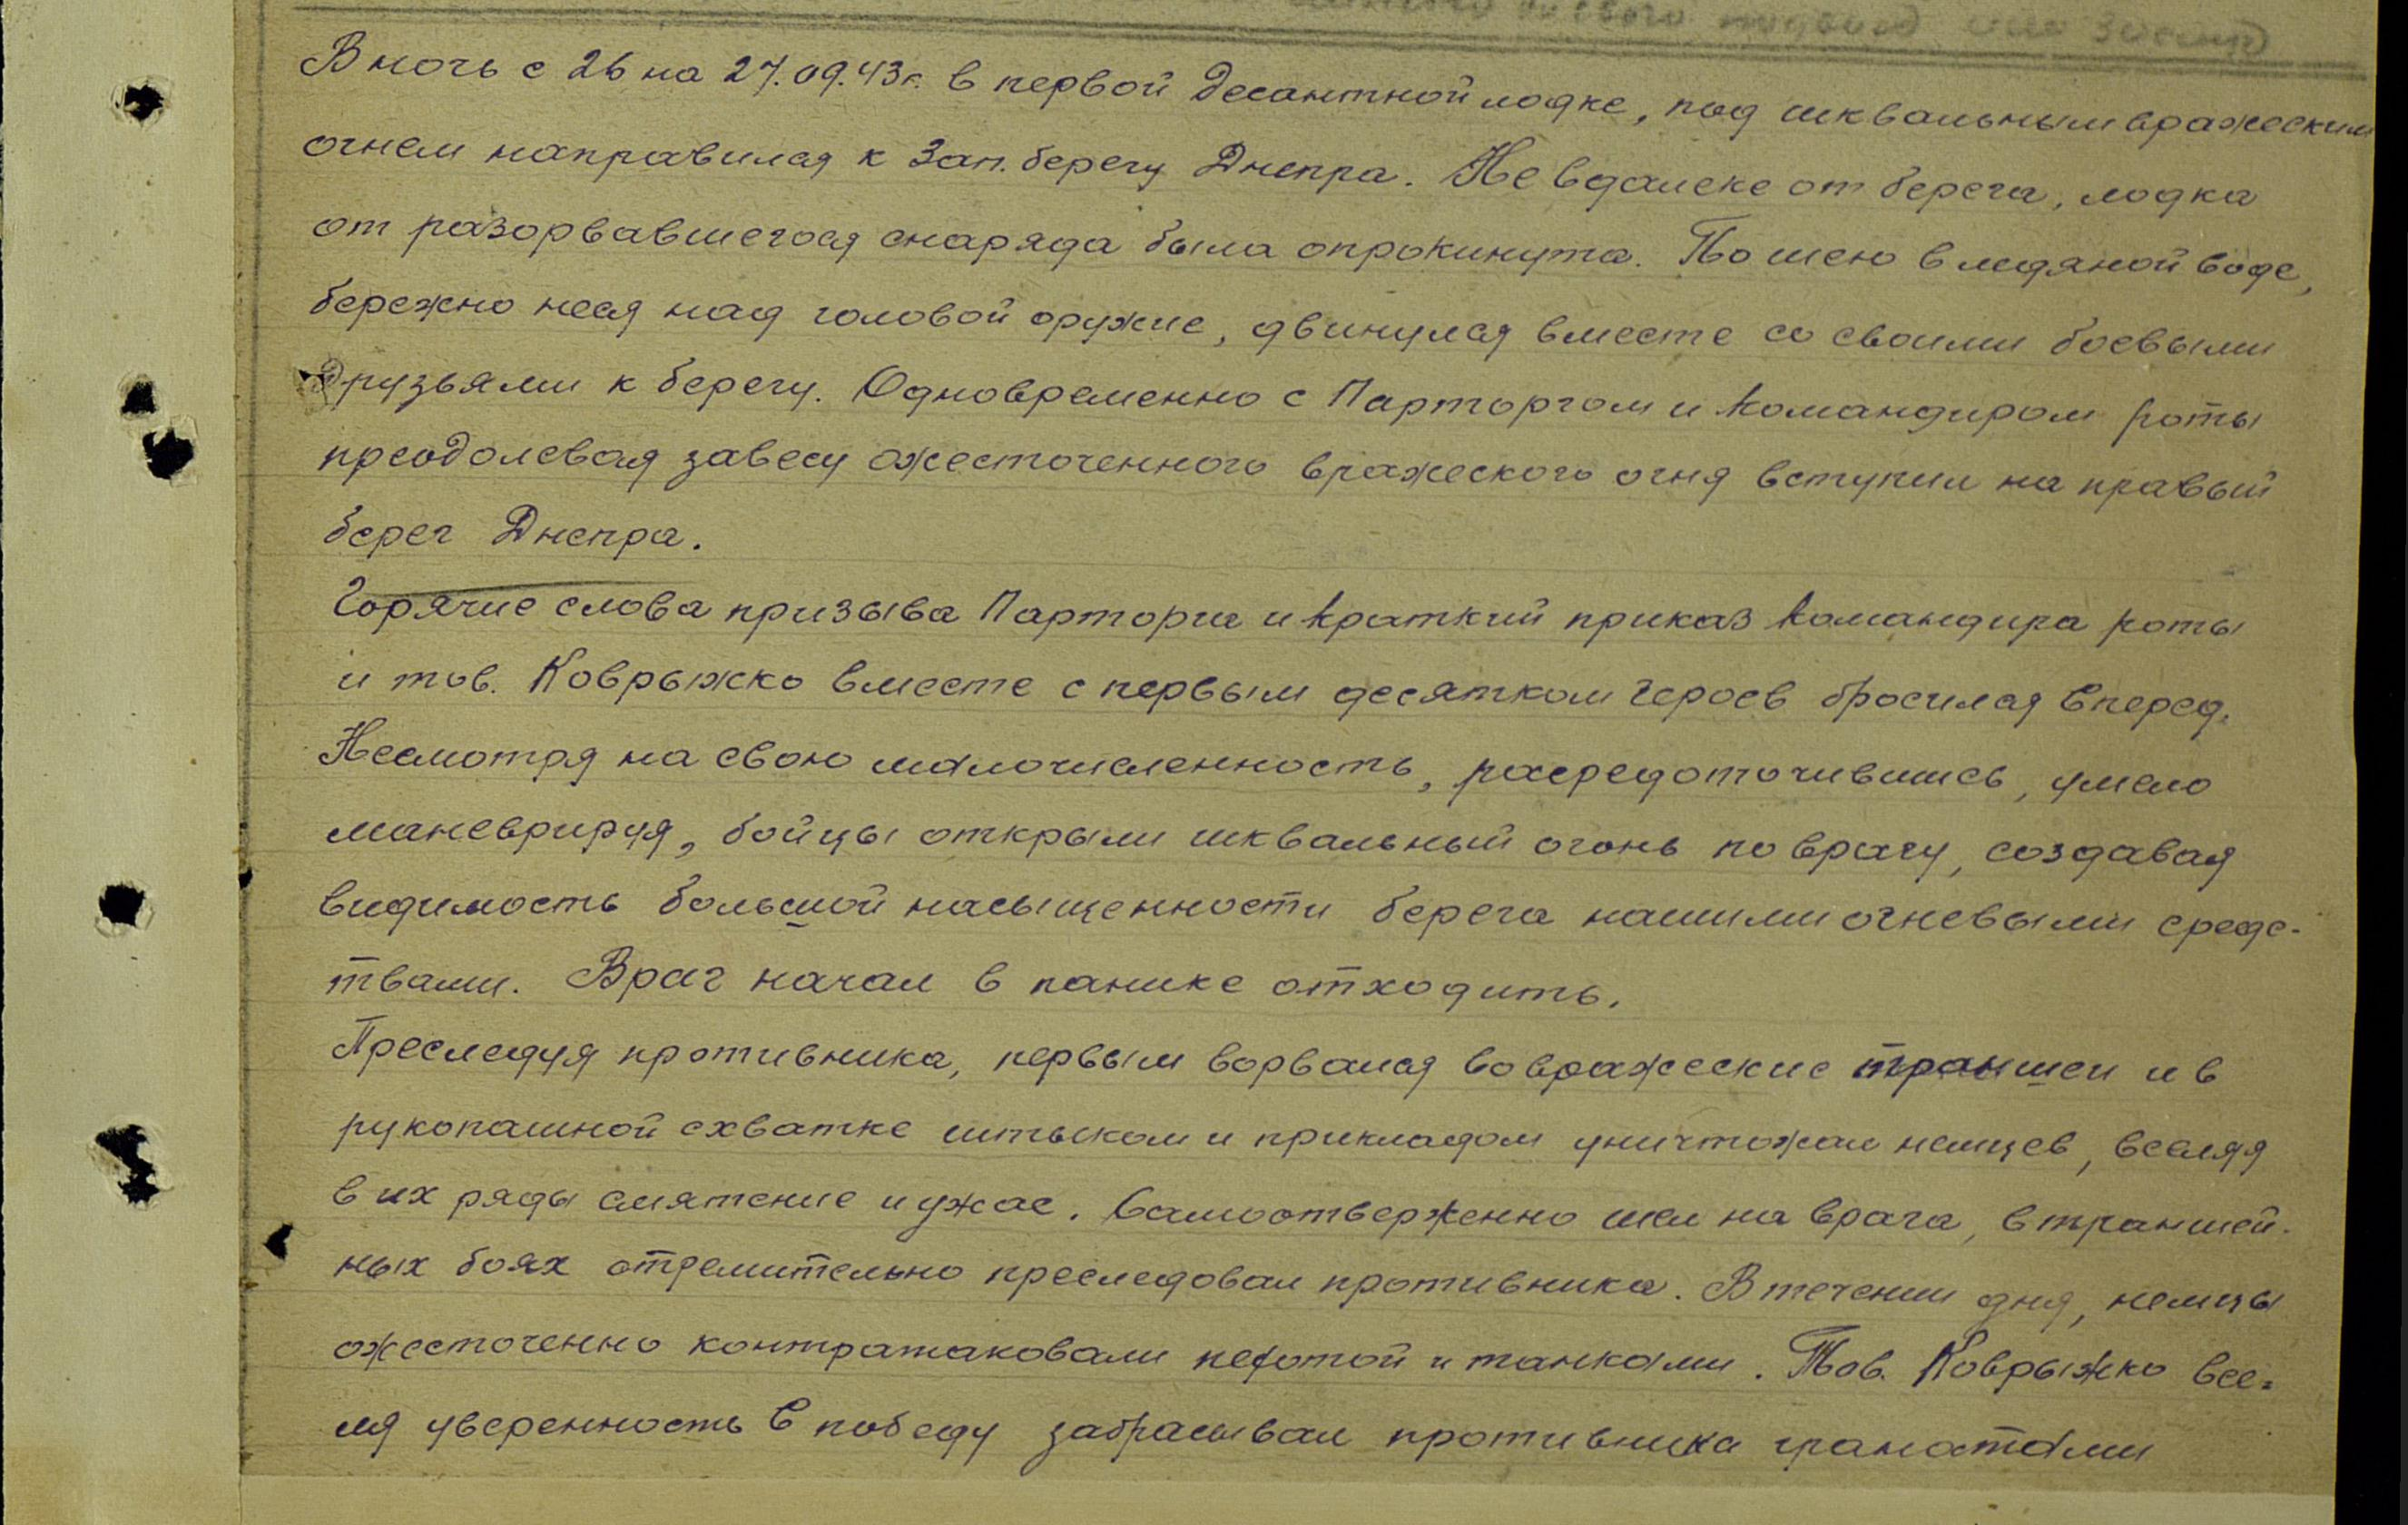 В ночь с 26 на 27.09.43г. в первой десантной лодке, под шквальным вражеским
огнем направился к Зап. берегу Днепра. Не вдалеке от берега, лодка
от разорвавшегося снаряда была опрокинута. По шею в ледяной воде,
бережно неся над головой оружие, двинулся вместе со своими боевыми
друзьями к берегу. Одновременно с Парторгом и командиром роты
преодолевая завесу ожесточенного вражеского огня вступил на правый
берег Днепра.
Горячие слова призыва Парторга и краткий приказ командира роты
и тов. Коврыжко вместе с первым десятком героев бросился вперед.
Несмотря на свою малочисленность, расредоточившись, умело
маневрируя, бойцы открыли шквальный огонь по врагу, создавая
видимость большой насыщенности берега нашими огневыми средс-
твами. Враг начал в панике отходить.
Преследуя противника, первым ворвался во вражеские траншеи и в
рукопашной схватке штыком и прикладом уничтожал немцев, вселяя
в их ряды смятение и ужас. Самоотверженно шел на врага, в траншей-
ных боях стремительно преследовал противника. В течении дня, немцы
ожесточенно контратаковали пехотой и танками. Тов. Коврыжко все=
ля уверенность в победу забрасывал противника гранатами